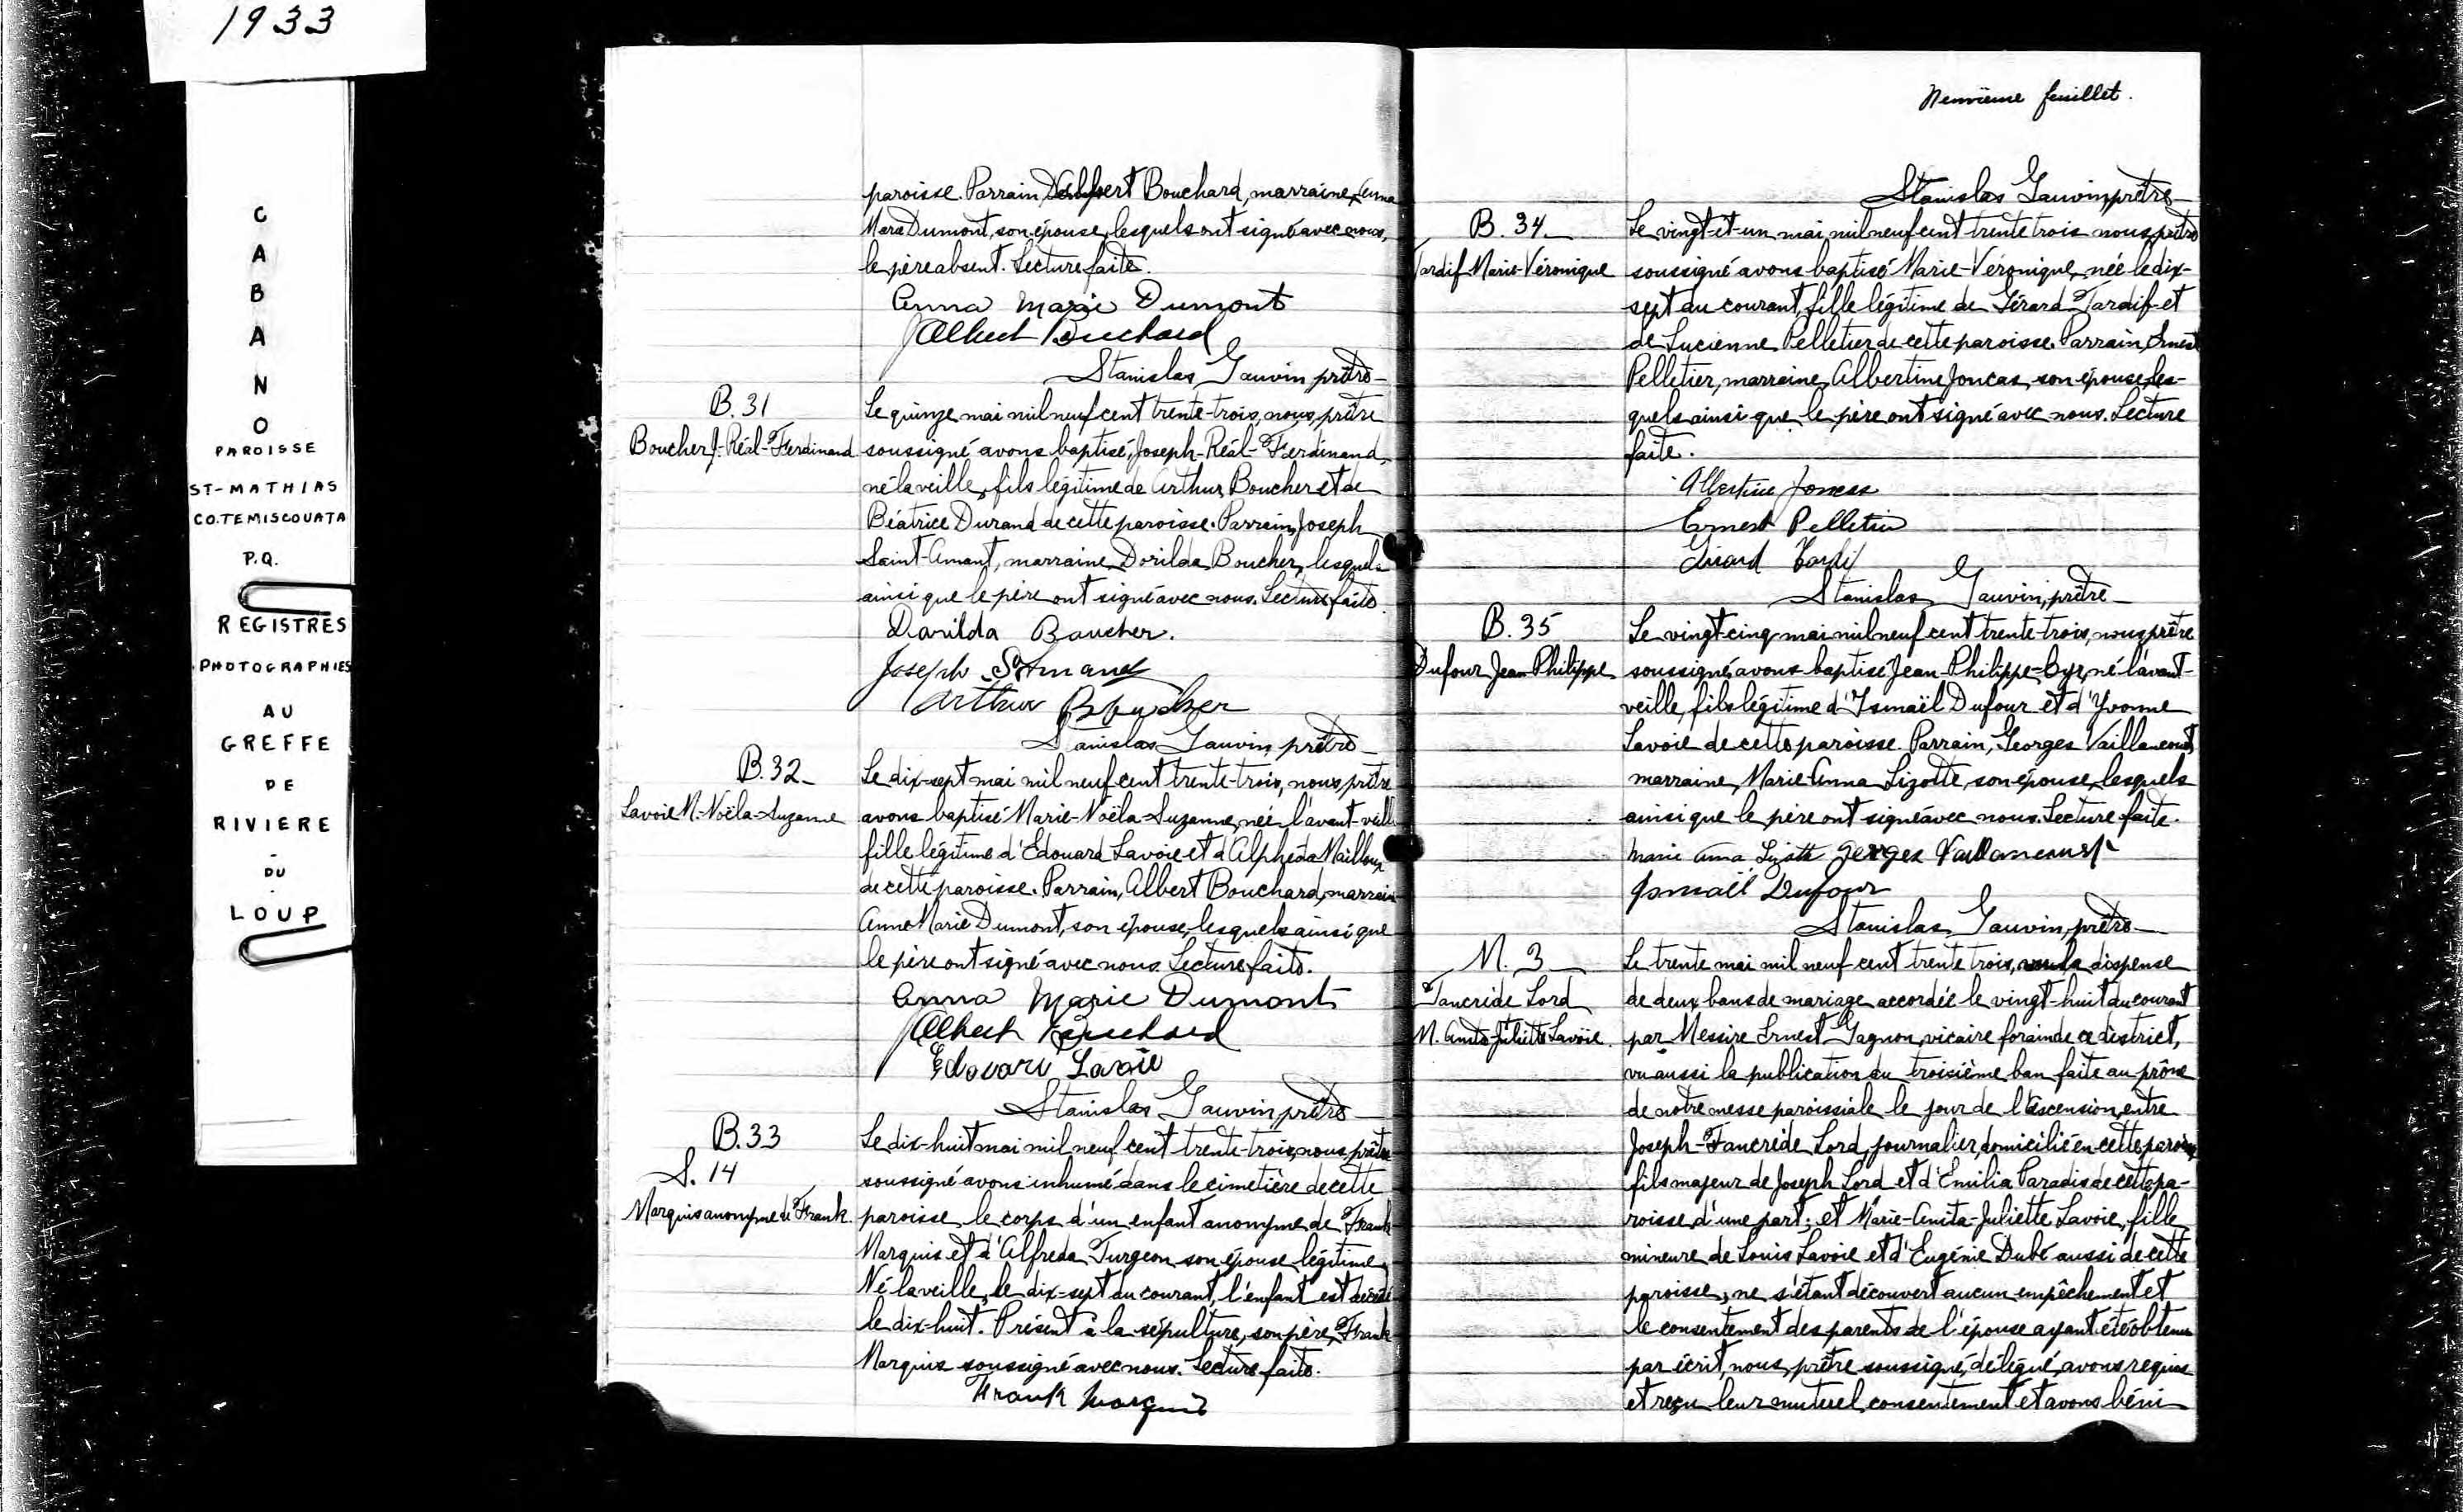 1933
C
A
B
A
N
O
PAROISSE
ST-MATHIAS
CO.TEMISCOUATA
P.Q.
REGISTRES
PHOTOGRAPHIES
AU
GREFFE
DE
RIVIERE
-
DU
-
LOUP
paroisse. Parrain, Albert Bouchard, marraine, Anna
Marie Dumont, son épouse, lesquels ont signé avec nous,
le père absent. Lecture faite.
Anna Marie Dumont
Albert Bouchard
Stanislas Gauvin, prêtre
B. 31
Boucher J.-Réal-Ferdinand
Le quinze mai mil neuf cent trente-trois, nous, prêtre
soussigné avons baptisé, Joseph-Réal-Ferdinand,
né la veille, fils légitime de Arthur Boucher et de
Béatrice Durand de cette paroisse. Parrain, Joseph
Saint-Amant, marraine, Dorilda Boucher, lesquels
ainsi que le père ont signé avec nous. Lecture faite.
Dorilda Boucher.
Joseph St Amand
Arthur Boucher
Stanislas Gauvin, prêtre
B. 32
Lavoie M.-Noëla-Suzanne
Le dix-sept mai mil neuf cent trente-trois, nous, prêtre
avons baptisé Marie-Noëla-Suzanne, née l'avant-veille
fille légitime d'Edouard Lavoie et d'Alphéda Mailloux
de cette paroisse. Parrain, Albert Bouchard, marraine
Anna Marie Dumont, son épouse, lesquels ainsi que
le père ont signé avec nous. Lecture faite.
Anna Marie Dumont
Albert Bouchard
Edouard Lavoie
Stanislas Gauvin, prêtre
B. 33
S. 14
Marquis anonyme de Frank
Le dix-huit mai mil neuf cent trente-trois, nous, prêtre
soussigné avons inhumé dans le cimetière de cette
paroisse le corps d'un enfant anonyme de Frank
Marquis et d'Alfreda Turgeon son épouse légitime.
Né la veille, le dix-sept du courant, l'enfant est décédé
le dix-huit. Présent à la sépulture, son père, Frank
Marquis soussigné avec nous. Lecture faite.
Frank Marquis
Neuvième feuillet.
Stanislas Gauvin, prêtre
B. 34
Tardif Marie-Véronique
Le vingt-et-un mai mil neuf cent trente trois nous, prêtre
soussigné avons baptisé Marie-Véronique, née le dix-
sept du courant, fille légitime de Gérard Tardif et
de Lucienne Pelletier de cette paroisse. Parrain, Ernest
Pelletier, marraine, Albertine Joncas, son épouse, les-
quels ainsi que le père ont signé avec nous. Lecture
faite.
Albertine Joncas
Ernest Pelletier
Gérard Tardif
Stanislas Gauvin, prêtre
B. 35
Dufour Jean Philippe
Le vingt-cinq mai mil neuf cent trente-trois, nous prêtre
soussigné avons baptisé Jean-Philippe- né l'avant-
veille, fils légitime d'Ismaël Dufour et d'Yvonne
Lavoie de cette paroisse. Parrain, Georges Vaillancourt,
marraine, Marie-Anna Lizotte, son épouse, lesquels
ainsi que le père ont signé avec nous. Lecture faite.
Marie Anna Lizotte Georges Vaillancourt
Ismaël Dufour
Stanislas Gauvin, prêtre
M. 3
Tancrède Lord
M. Anita-Juliette Lavoie
Le trente mai mil neuf cent trente trois, vu la dispense
de deux bans de mariage accordée le vingt-huit du courant
par Messire Ernest Gagnon, vicaire forain de ce district,
vu aussi la publication du troisième ban faite au prône
de notre messe paroissiale le jour de l'Ascension, entre
Joseph-Tancrède Lord, journalier, domicilié en cette paroisse,
fils majeur de Joseph Lord et d'Emilia Paradis de cette pa-
roisse, d'une part; et Marie-Anita-Juliette Lavoie, fille
mineure de Louis Lavoie et d'Eugénie Dubé aussi de cette
paroisse, ne s'étant découvert aucun empêchement et
le consentement des parents de l'épouse ayant été obtenu
par écrit, nous, prêtre soussigné, délégué, avons requis
et reçu leur mutuel consentement et avons béni